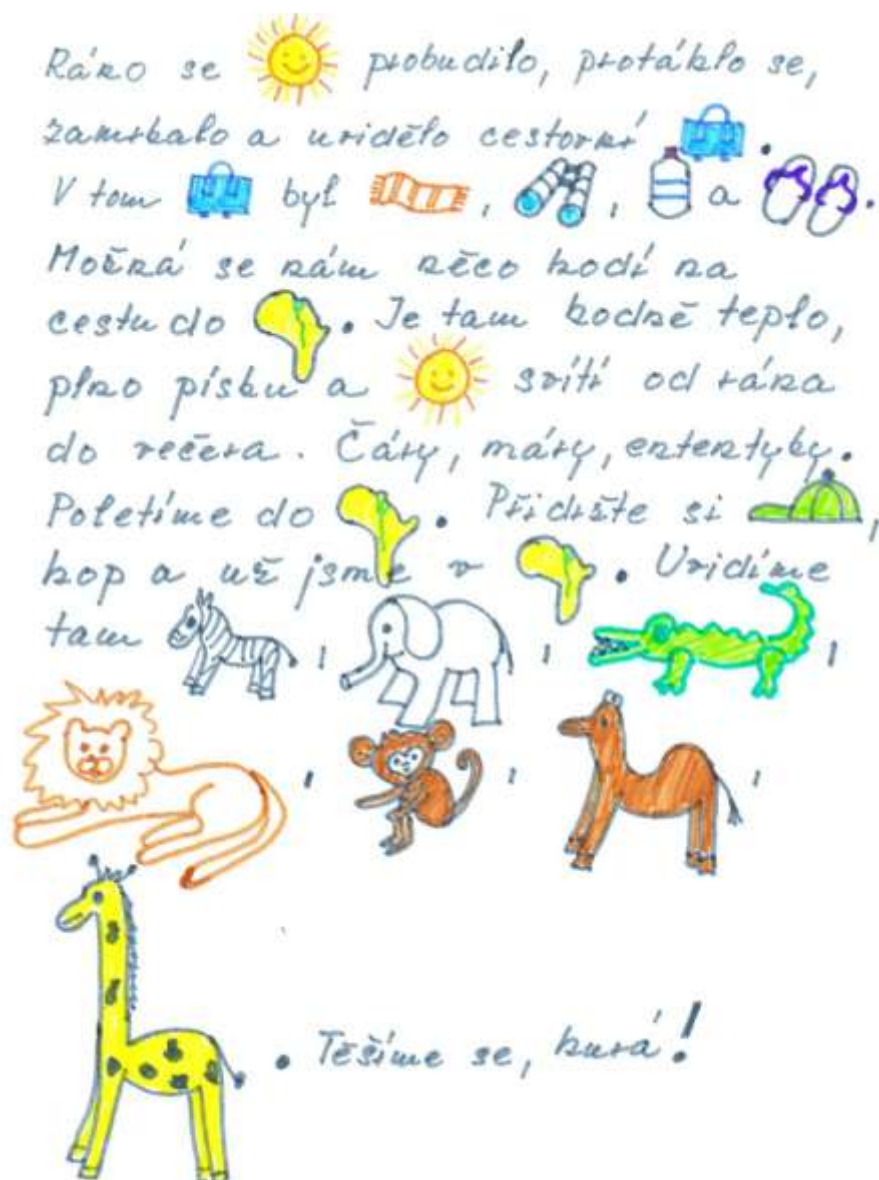 Ráno se probudilo, protáhlo se,
zamrkalo a uvidělo cestovní .
V tom byl , , a .
Možná se nám něco hodí na
cestu do . Je tam hodně teplo,
plno písku a svítí od rána
do večera. Čáry, máry, ententyky.
Poletíme do . Přidržte si ,
hop a už jsme v . Uvidíme
tam , , ,
, , ,
. Těšíme se, hurá!